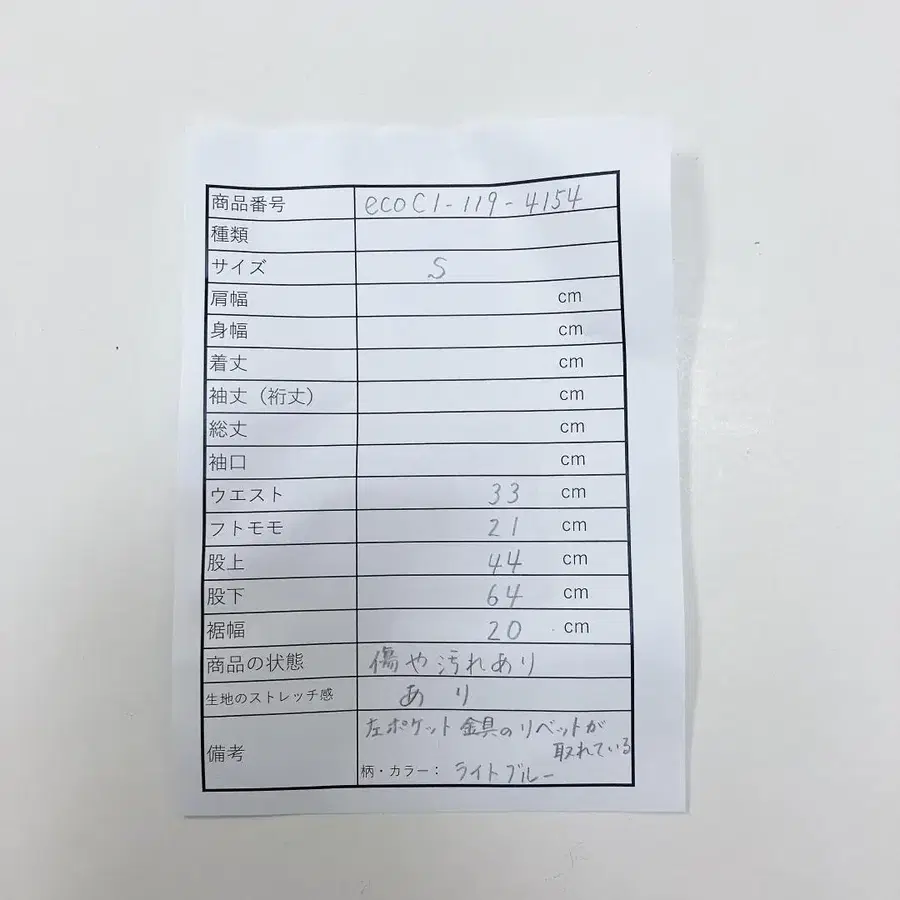 商品番号 ecoC1-119-4154
種類
サイズ S
肩幅 cm
身幅 cm
着丈 cm
袖丈（裄丈） cm
総丈 cm
袖口 cm
ウエスト 33 cm
フトモモ 21 cm
股上 44 cm
股下 64 cm
裾幅 20 cm
商品の状態 傷や汚れあり
生地のストレッチ感 あり
備考 左ポケット金具のリベットが
取れている
柄・カラー： ライトブルー